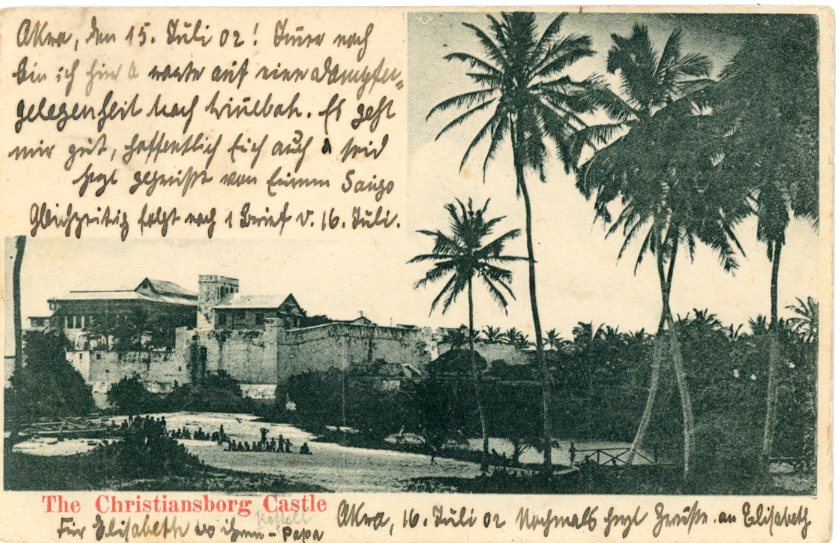 Akra, den 15. Juli 02! Immer noch
bin ich hier & warte auf eine Dampfer-
gelegenheit nach. Es geht
mir gut, hoffentlich Euch auch & seid
herzl gegrüßt von Eurem
Gleichzeitig folgt noch 1 Brief v. 16. Juli.
The Christiansborg Castle
Für Elisabeth von ihrem Papa
Akra, 16. Juli 02 Nochmals herzl Grüße an Elisabeth